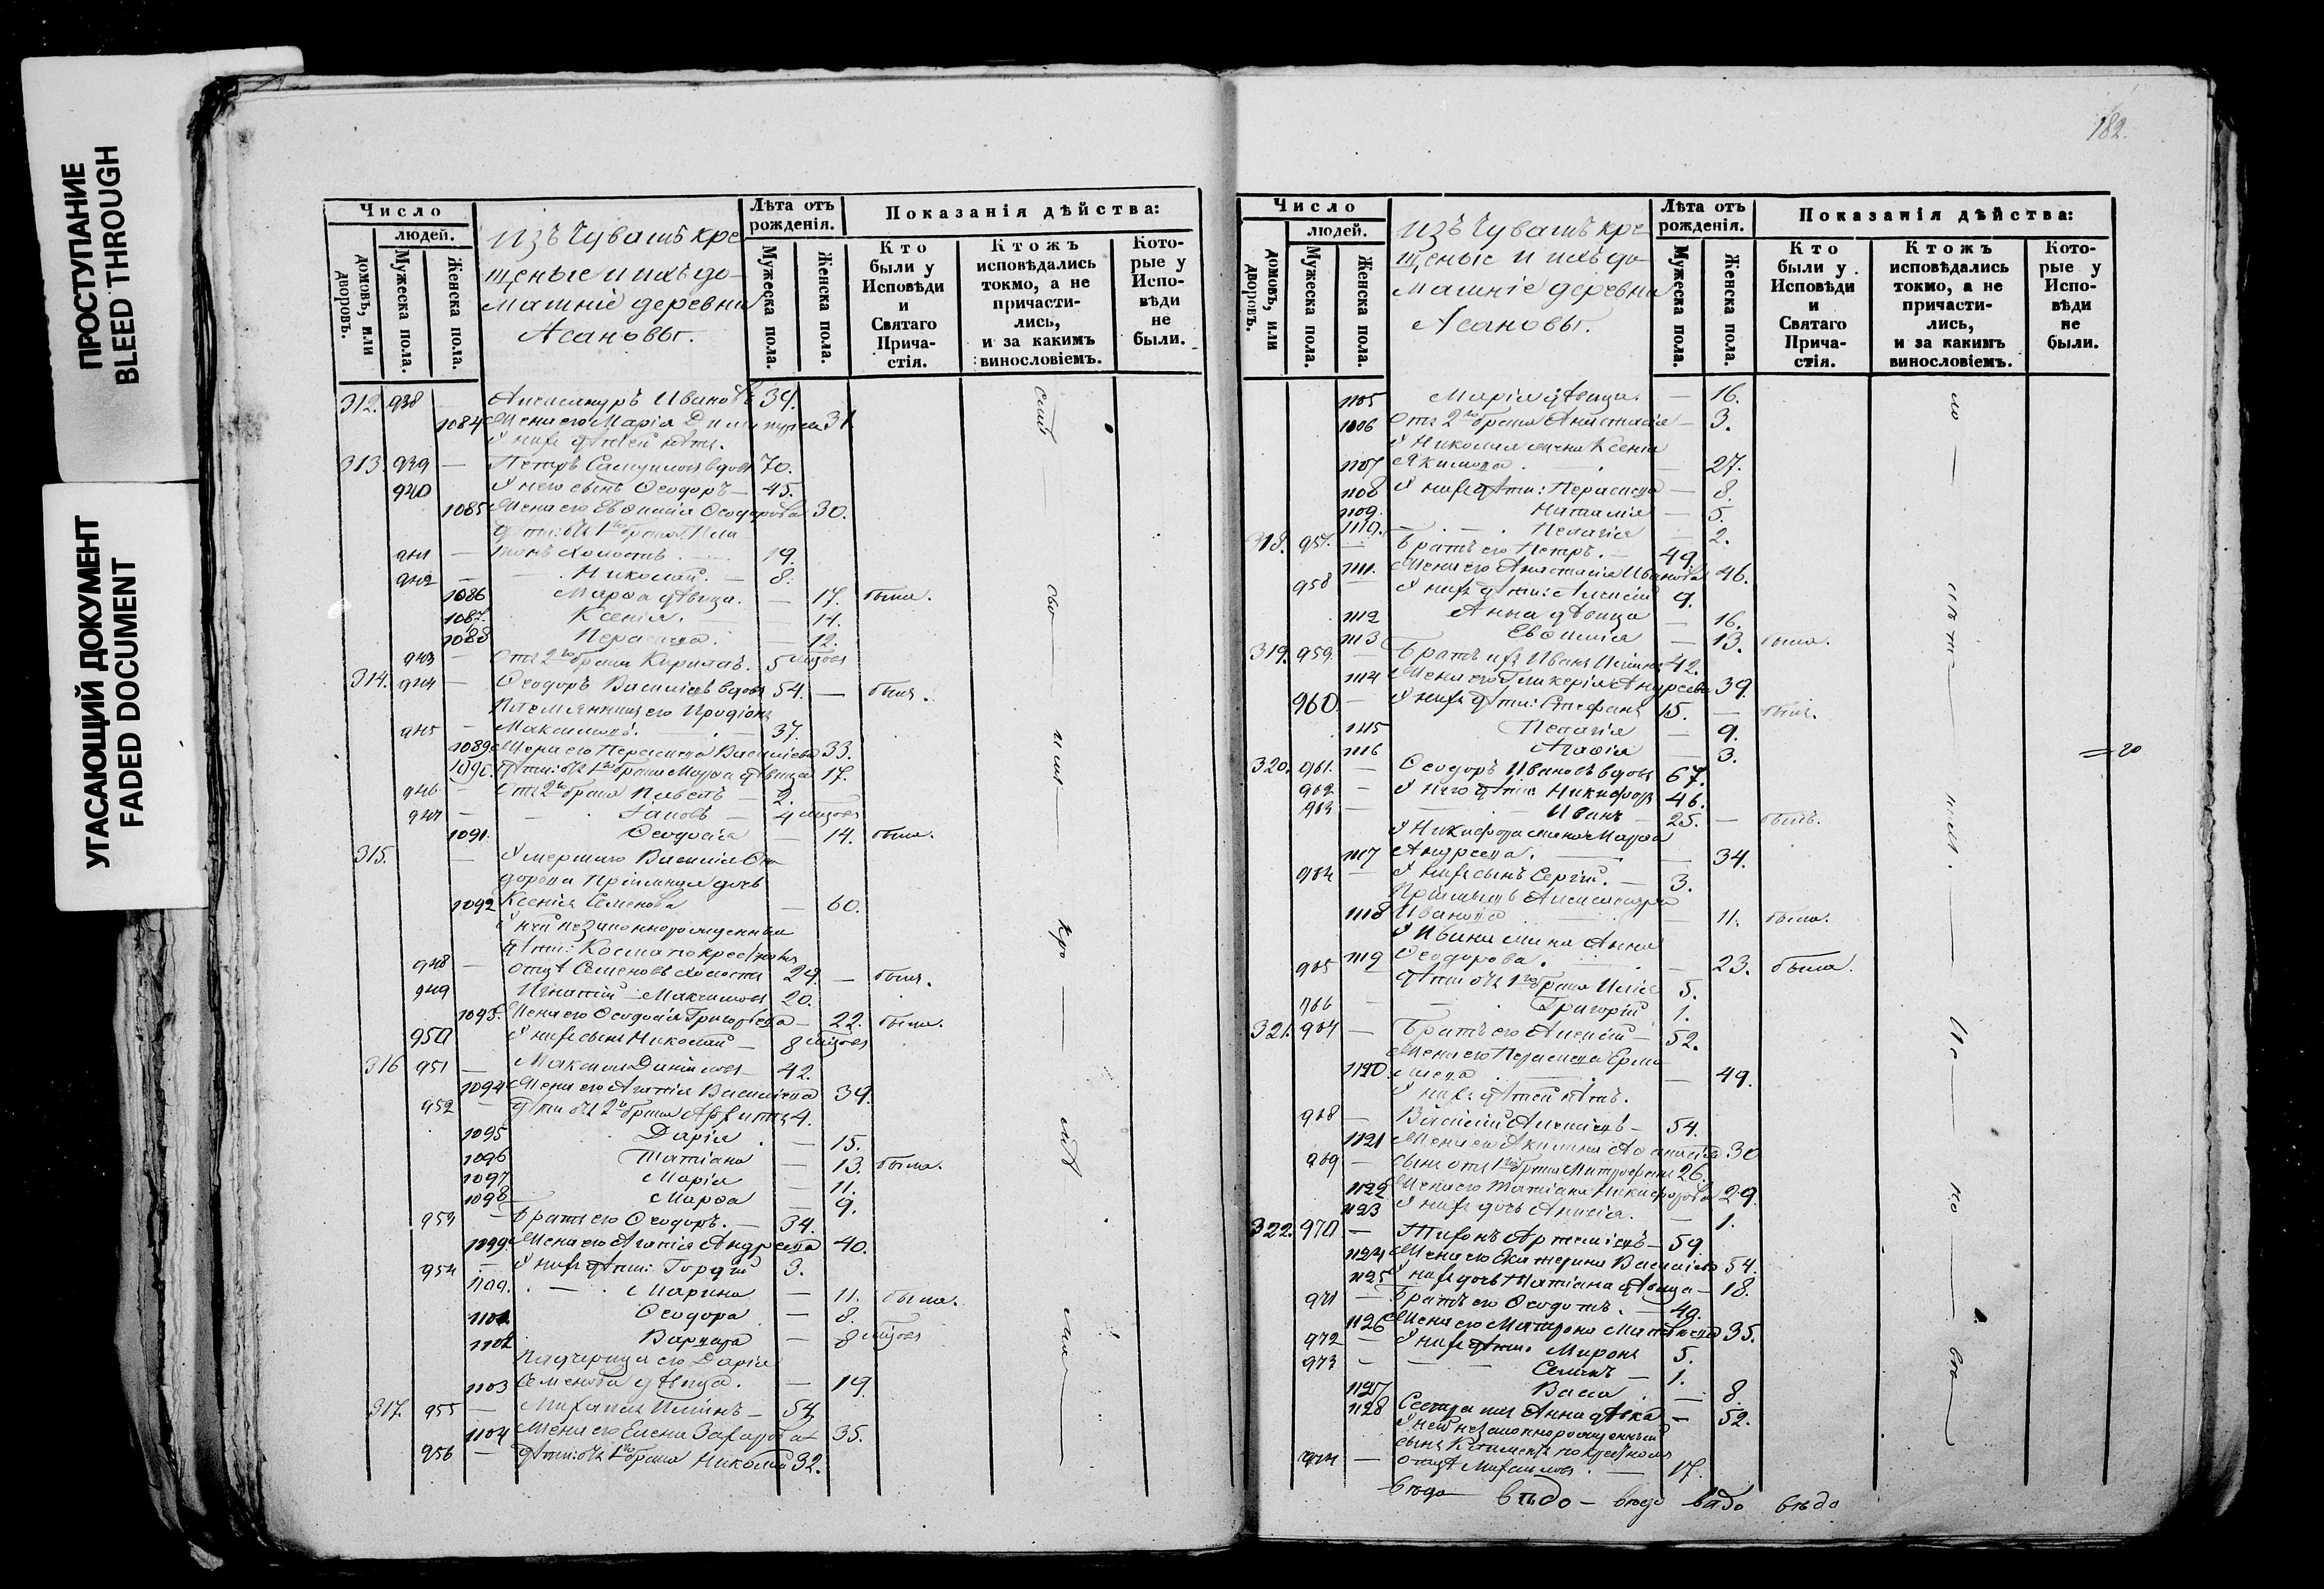 ПРОСТУПАНИЕ
BLEED THROUGH
УГАСАЮЩИЙ ДОКУМЕНТ
FADED DOCUMENT
Число
людей.
домовъ, или дворовъ.
Мужеска пола.
Женска пола.
Изъ Чувашъ кре
щеные и ихъ до-
машніе деревни
Асановы.
Лѣта отъ рожденія.
Мужеска пола.
Женска пола.
Показанія дѣйства:
Кто были у Исповѣди и Святаго Причастія.
Ктожъ исповѣдались токмо, а не причастились, и за какимъ винословіемъ.
Которые у Исповѣди не были.
312. 938 — Александръ Ивановъ 34.
1084 Жена его Марія Дмитріева 31.
У нихъ дѣтей нѣтъ.
313. 939 — Петръ Самуиловъ вдовъ 70.
940 У него сынъ Ѳеодоръ — 45.
1085 Жена его Евѳимія Ѳеодорова 30.
Дѣти: отъ 1го брака Пла
941 — тонъ холостъ 19.
942 — Николай. — 8.
1086 Марѳа дѣвица. — 17. была.
1087. Ксенія. — 14.
1088 Параскева. — 12.
943 — Отъ 2го брака Кириллъ. 5 мѣсяц
314. 944 — Ѳеодоръ Васильевъ вдовъ 54. — былъ.
Племянникъ его Иродіонъ
945 — Максимовъ. 37.
1089 Жена его Параскева Васильева 33.
1090. Дѣти: отъ 1го брака Марѳа дѣвица 17.
946 — Отъ 2го брака Павелъ — 2.
947 — Іаковъ — 4 мѣсяц
1091. Ѳеодосія — 14. была.
315. — Умершаго Василія Ѳео
дорова пріемная дочь
1092 Ксенія Семенова — 60.
У ней незаконнорожденныя
дѣти: Косма по крестному
948 — отцу Семеновъ холостъ 29. — былъ.
949 Игнатій Максимовъ 20.
1093. Жена его Ѳеодосія Григорьева — 22. была.
950 У нихъ сынъ Николай — 8 мѣсяц
316 951 — Максимъ Даниловъ — 42.
1094 Жена его Агаѳія Васильева 39.
952 — Дѣти отъ 2го брака Архипъ 4.
1095 Дарія — 15.
1096 Татіана — 13. была.
1097 Марія — 11.
1098 Марѳа — 9.
953 — Братъ его Ѳеодоръ. — 34.
1099 Жена его Агаѳія Андреева 40.
954 — У нихъ дѣти: Гордій 3.
1100. Марина — 11. была.
1101 Ѳеодора — 8.
1102 Варвара — 8 мѣсяц
Падчерица его Дарія
1103 Семенова дѣвица. — 19.
317. 955 — Михаилъ Ильинъ — 54
1104 Жена его Елена Захарова 35.
956 — Дѣти: отъ 1го брака Николай 32.
182.
Число
людей.
домовъ, или дворовъ.
Мужеска пола.
Женска пола.
Изъ Чувашъ кре
щеные и ихъ до
машніе деревни
Асановы.
Лѣта отъ рожденія.
Мужеска пола.
Женска пола.
Показанія дѣйства:
Кто были у Исповѣди и Святаго Причастія.
Ктожъ исповѣдались токмо, а не причастились, и за какимъ винословіемъ.
Которые у Исповѣди не были.
1105 Марія дѣвица. — 16.
1106 Отъ 2го брака Анастасія — 3.
У Николая жена Ксенія
1107 Якимова. — 27.
1108 У нихъ дѣти: Параскева — 8.
1109. Наталія — 5.
1110. Пелагія — 2.
318. 957. — Братъ его Петръ. — 49.
1111. Жена его Анастасія Иванова 46.
958 — У нихъ дѣти: Алексій 9.
1112 Анна дѣвица — 16.
1113 Евѳимія — 13. была.
319. 959. — Братъ ихъ Иванъ Ильинъ 42.
1114 Жена его Гликерія Андреева 39.
960 — У нихъ дѣти: Стефанъ 15. — былъ.
1115 Пелагія — 9.
1116 Агаѳія — 3.
320. 961. — Ѳеодоръ Ивановъ вдовъ 67.
962 — У него дѣти: Никифоръ 46.
963 — Иванъ — 25. — былъ.
У Никифора жена Марѳа
1117 Андреева. — 34.
964 — У нихъ сынъ Сергій. — 3.
Пріемышъ Александра
1118 Иванова — 11. была.
У Ивана жена Анна
1119 Ѳеодорова. — 23. была.
965 Дѣти отъ 1го брака Илія 5.
966 — Григорій 1.
321. 967 — Братъ его Алексій — 52.
Жена его Параскева Ермо
1120. лаева — 49.
У нихъ дѣтей нѣтъ.
968 — Василій Алексѣевъ — 54.
1121 Жена его Акилина 30
969 — Сынъ отъ 1го брака Митрофанъ 26.
1122 Жена его Татіана Никифорова 29.
1123 У нихъ дочь Анисія. — 1.
322. 970 — Тихонъ Артемьевъ — 59.
1124 Жена его Екатерина Васильева 54.
1125 У нихъ дочь Татіана дѣвица — 18.
971 — Братъ его Ѳеодотъ. — 40.
1126 Жена его Матрона Матвѣева 35.
972 — У нихъ дѣти. Миронъ 5.
973 — Семенъ — 1.
1127 Васса — 8.
1128 Сестра ихъ Анна дѣвка — 52.
У ней незаконнорожденный
сынъ Климентъ по крестному
974 — отцу Михаиловъ. — 17.
= 20